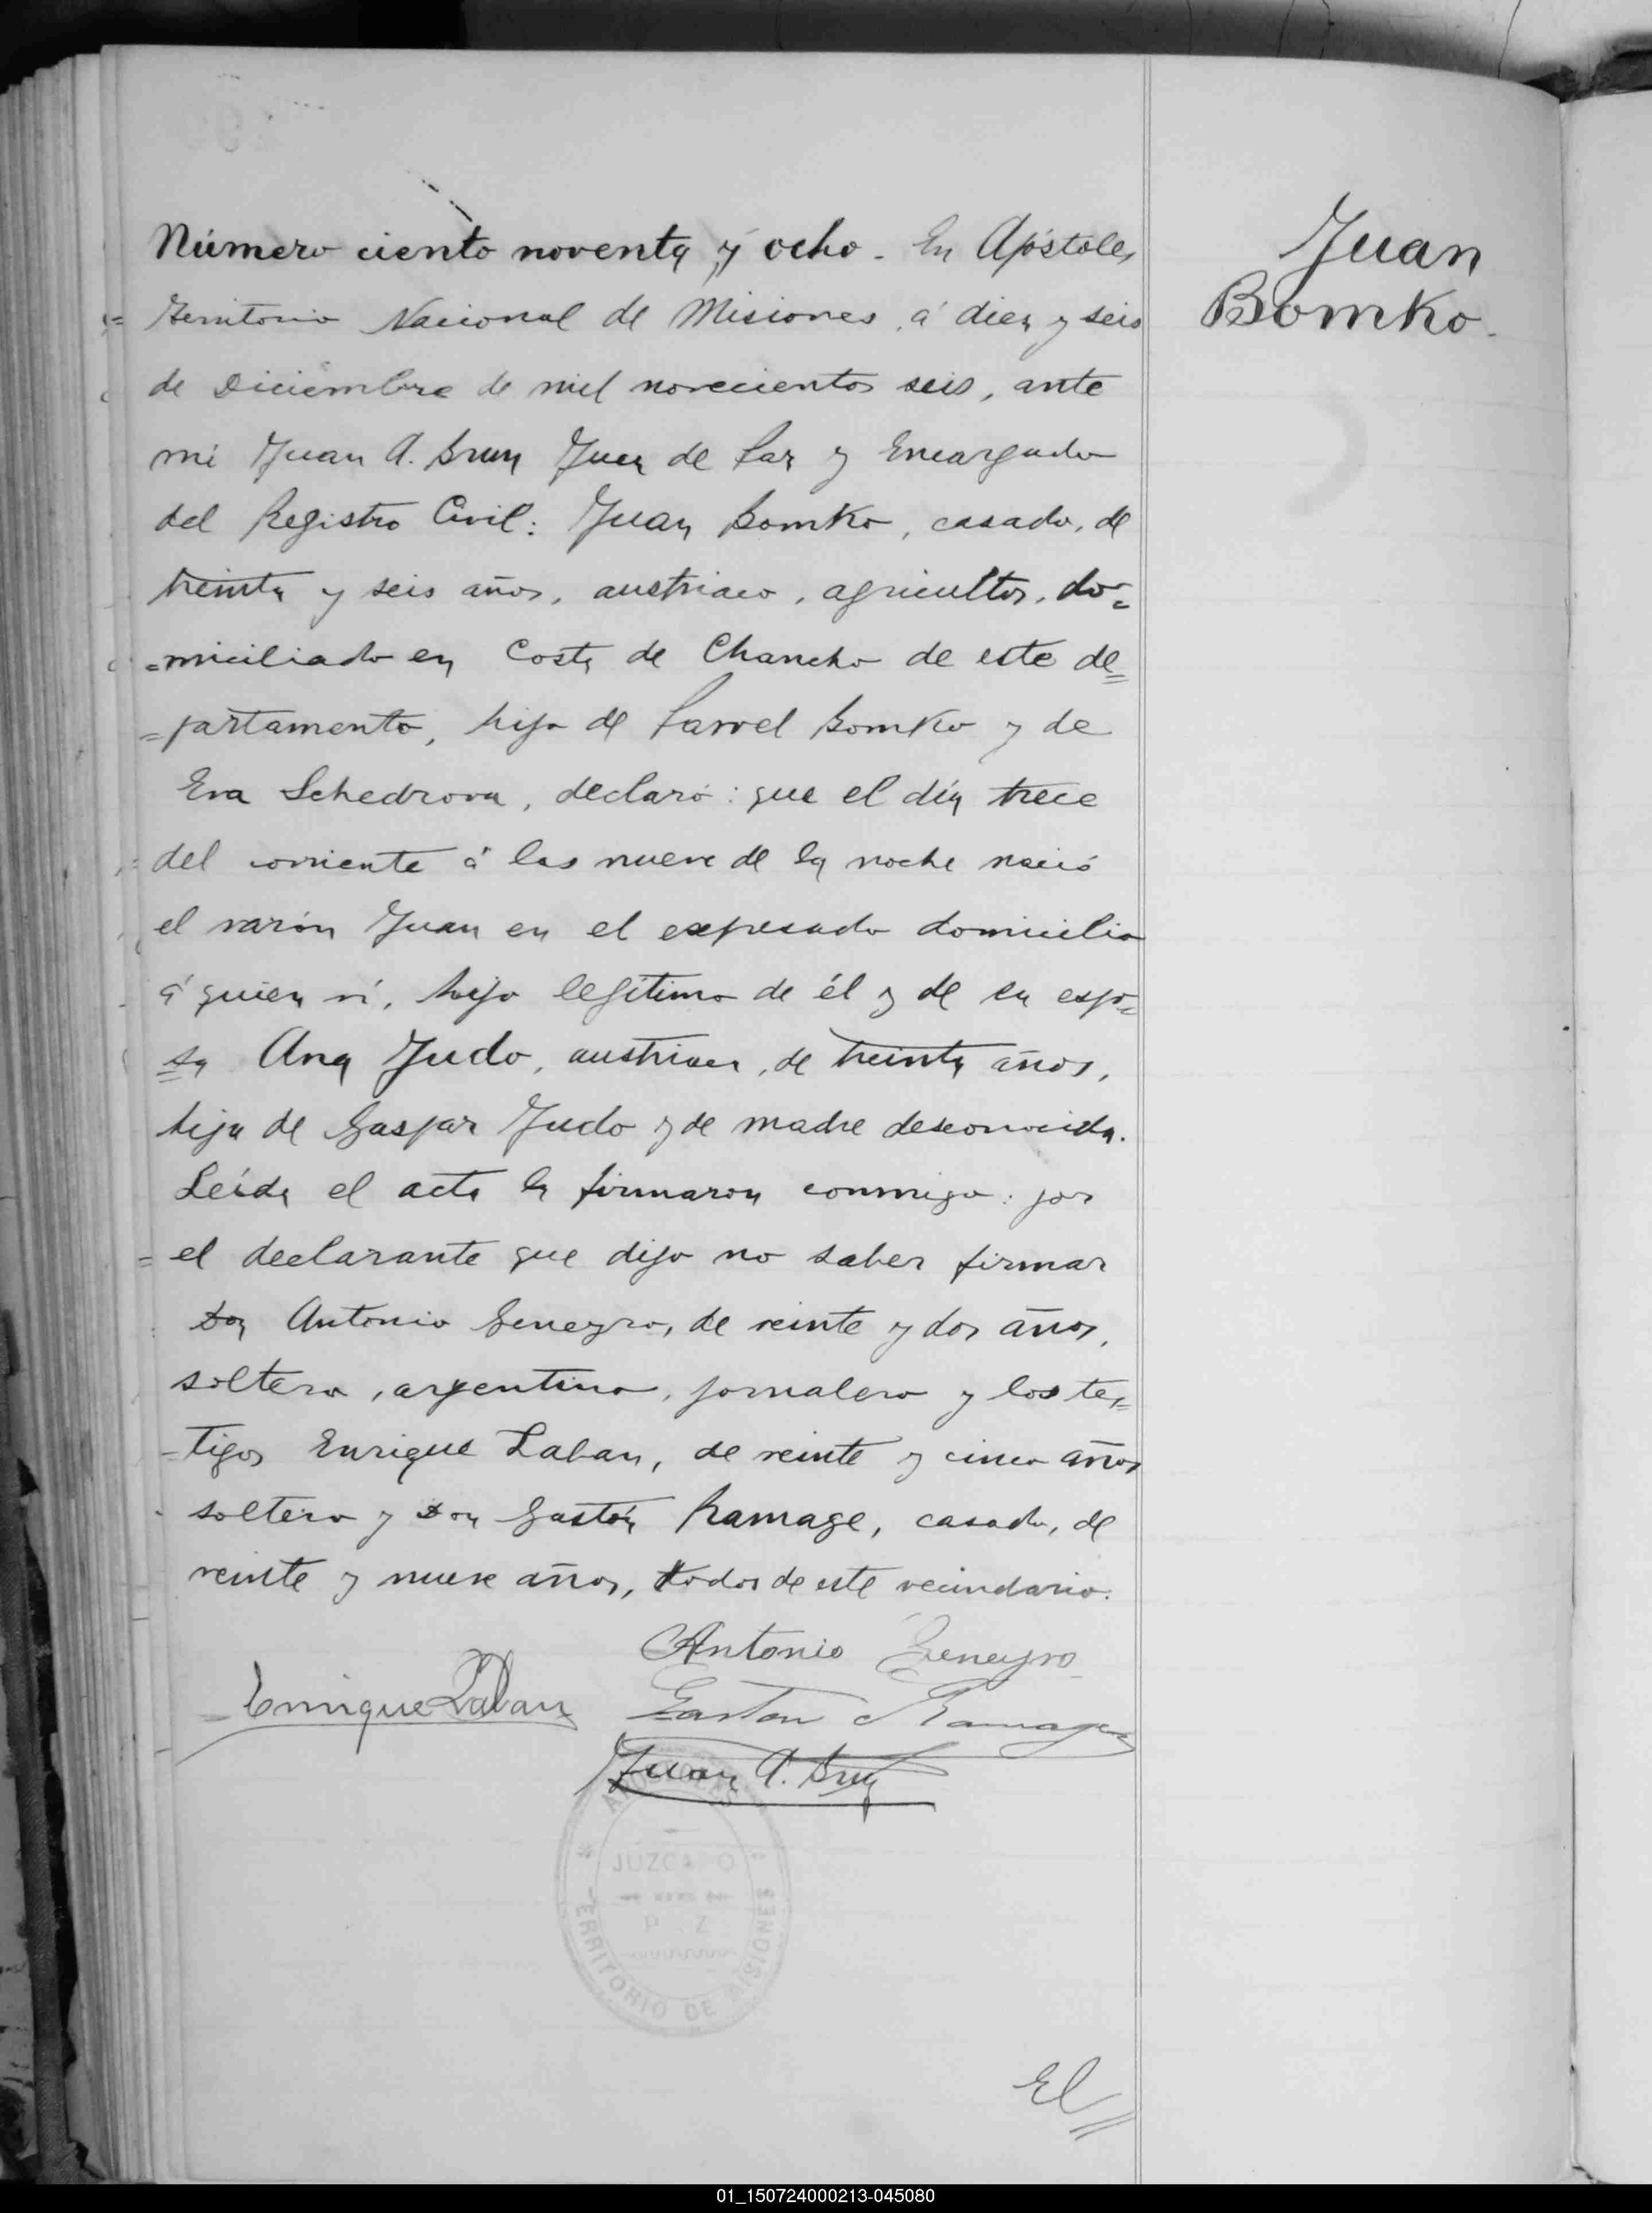 Número ciento noventa y ocho. En Apóstoles,
Territorio Nacional de Misiones, á diez y seis
de Diciembre de mil novecientos seis, ante
mi Juan A. Brun Juez de Paz y Encargado
del Registro Civil: Juan Bomko, casado, de
treinta y seis años, austriaco, agricultor, do=
=miciliado en Costa de Chancho de este de=
=partamento, hijo de Pawel Bomko y de
Eva Schedrova, declaró: que el día trece
del corriente á las nueve de la noche nació
el varón Juan en el expresado domicilio
á quien ví, hijo legítimo de él y de su espo=
=sa Ana Judo, austriaca, de treinta años,
hija de Gaspar Judo y de madre desconocida.
Leída el acta la firmaron conmigo: por
= el declarante que dijo no saber firmar
Don Antonio Geneyro, de veinte y dos años,
soltero, argentino, jornalero y los tes=
=tigos Enrique Laban, de veinte y cinco años
soltero y Don Gastón Ramage, casado, de
veinte y nueve años, todos de este vecindario.
Antonio Geneyro
Enrique Laban Gaston Ramage
Juan A. Brun
JUZGADO
TERRITORIO DE MISIONES
El
Juan
Bomko.
01_150724000213-045080